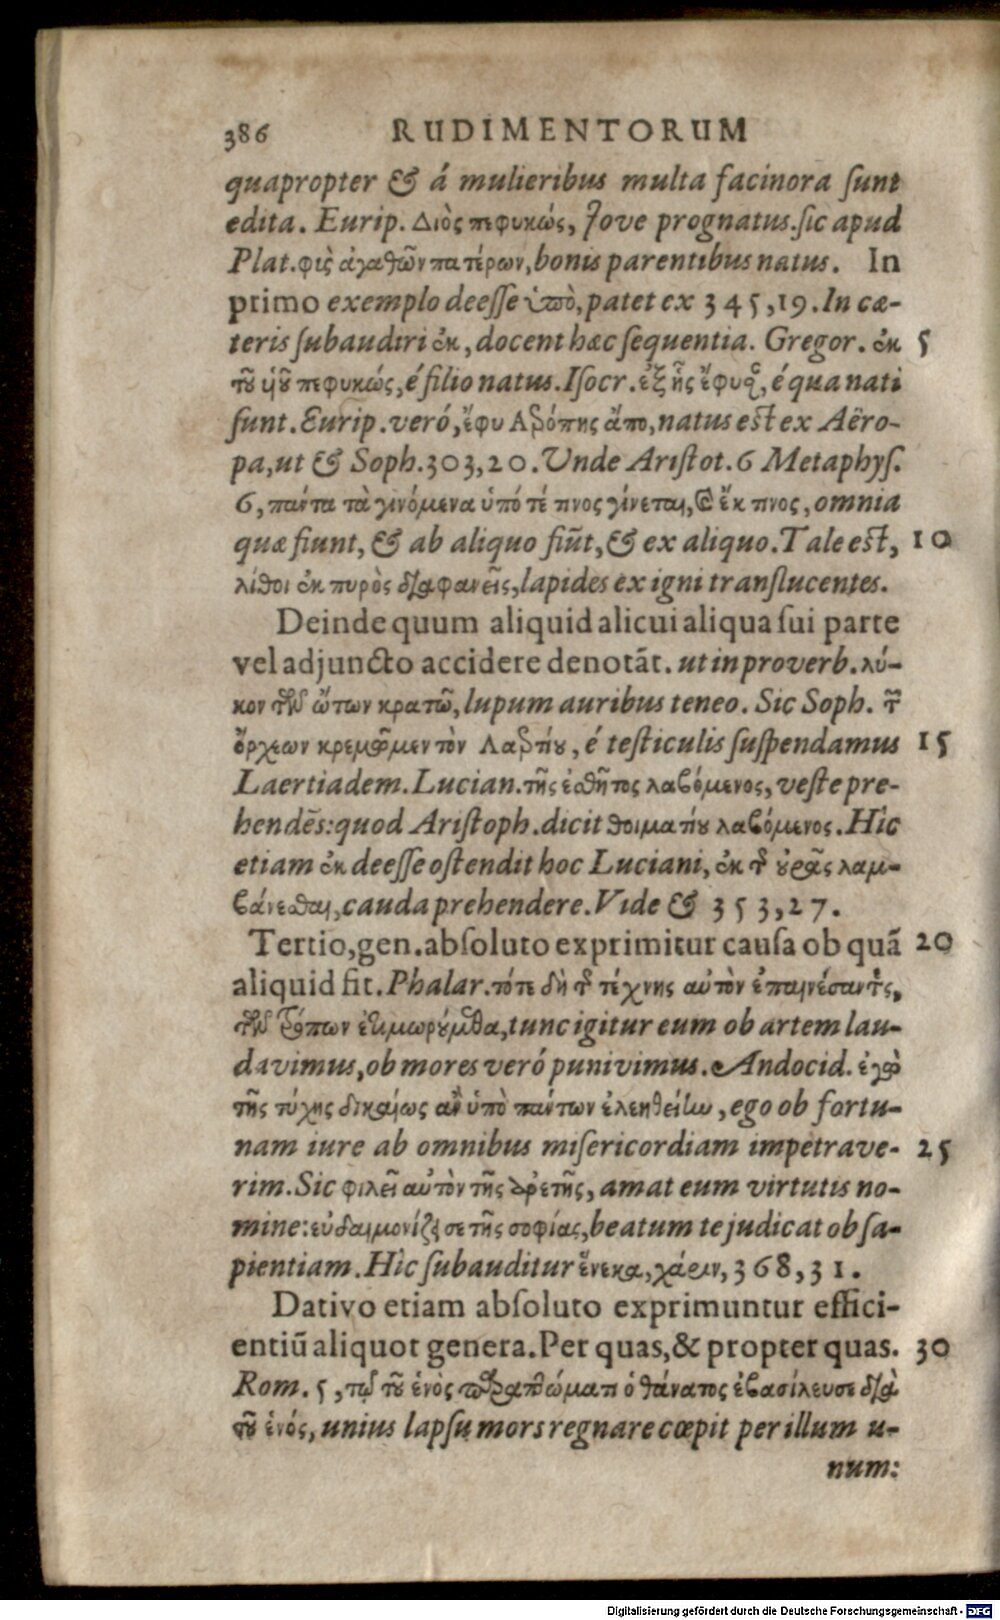 386 RUDIMENTORUM
quapropter & á mulieribus multa facinora ſunt
edita. Eurip. Διὸς πεφυκώς, Jove prognatus. ſic apud
Plat. φὺς ἀγαθῶν πατέρων, bonis parentibus natus. In
primo exemplo deeſſe ὑπὸ, patet ex 345,19. In cæ-
teris ſubaudiri ἐκ, docent hæc ſequentia. Gregor. ἐκ 5
τοῦ ὑοῦ πεφυκώς, é filio natus. Iſocr. ἐξ ἧς ἔφυσαν, é qua nati
ſunt. Eurip. veró, ἔφυ Αερόπης ἄπο, natus est ex Aëro-
pa, ut & Soph. 303,20. Unde Ariſtot. 6 Metaphyſ.
6, πάντα τὰ γινόμενα ὑπό τέ τινος γίνεται, καὶ ἔκ τινος, omnia
quæ fiunt, & ab aliquo fiũt, & ex aliquo. Tale eſt, 10
λίθοι ἐκ πυρὸς διαφανεῖς, lapides ex igni tranſlucentes.
Deinde quum aliquid alicui aliqua ſui parte
vel adjuncto accidere denotãt. ut in proverb. λύ-
κον τῶν ὤτων κρατῶ, lupum auribus teneo. Sic Soph. τῶν
ὄρχεων κρεμῶμεν τὸν Λαερτίου, é teſticulis ſuſpendamus 15
Laertiadem. Lucian. τῆς ἐσθῆτος λαβόμενος, veſte pre-
hendẽs: quod Ariſtoph. dicit θοιματίου λαβόμενος. Hîc
etiam ἐκ deeſſe oſtendit hoc Luciani, ἐκ τῆς οὐρᾶς λαμ-
βάνεσθαι, cauda prehendere. Vide & 353,27.
Tertio, gen. abſoluto exprimitur cauſa ob quã 20
aliquid fit. Phalar. τότε δὴ τῆς τέχνης αὐτὸν ἐπαινέσαντες,
τῶν τρόπων ἐτιμωρούμεθα, tunc igitur eum ob artem lau-
davimus, ob mores veró punivimus. Andocid. ἐγὼ
τῆς τύχης δικαίως ἂν ὑπὸ πάντων ἐλεηθείην, ego ob fortu-
nam iure ab omnibus miſericordiam impetrave- 25
rim. Sic φιλεῖ αὐτὸν τῆς ἀρετῆς, amat eum virtutis no-
mine: εὐδαιμονίζει σε τῆς σοφίας, beatum te judicat ob ſa-
pientiam. Hîc ſubauditur ἕνεκα, χάριν, 368,31.
Dativo etiam abſoluto exprimuntur effici-
entiũ aliquot genera. Per quas, & propter quas. 30
Rom. 5, τῷ τοῦ ἑνὸς παραπτώματι ὁ θάνατος ἐβασίλευσε διὰ
τοῦ ἑνός, unius lapſu mors regnare cœpit per illum u-
num:
Digitalisierung gefördert durch die Deutsche Forschungsgemeinschaft - DFG